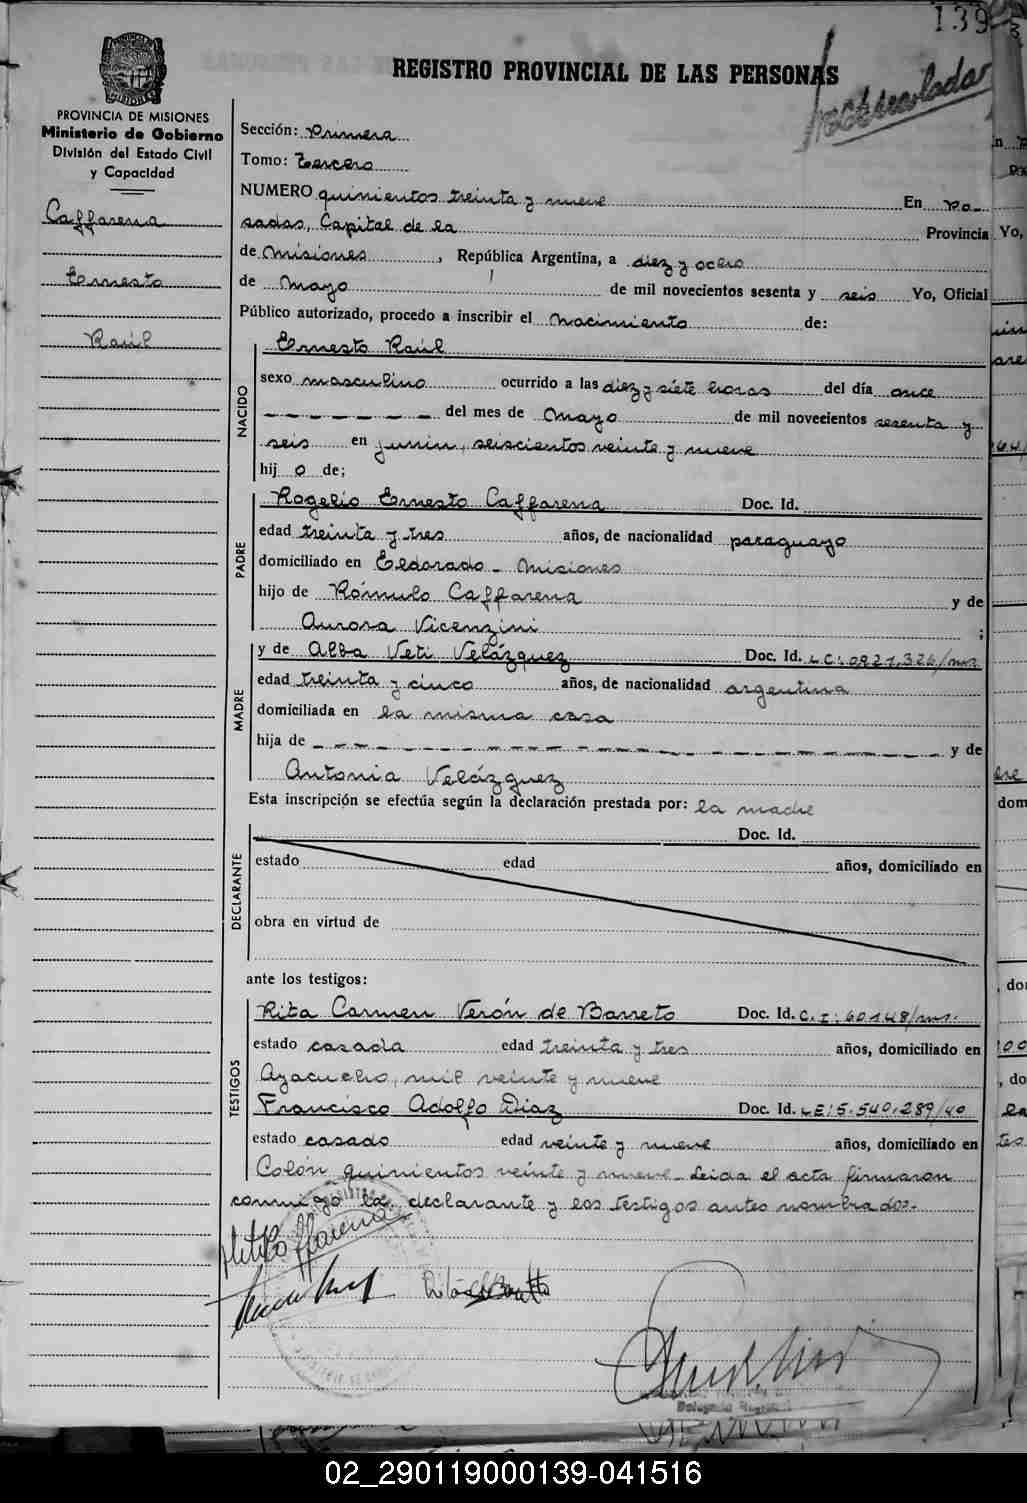 139
REGISTRO PROVINCIAL DE LAS PERSONAS
PROVINCIA DE MISIONES
Ministerio de Gobierno
División del Estado Civil
y Capacidad
Caffarena
Ernesto
Raúl
Sección: Primera
Tomo: tercero
NUMERO quinientos treinta y nueve En Po-
sadas, Capital de la Provincia
de Misiones, República Argentina, a diez y ocho
de Mayo de mil novecientos sesenta y seis Yo, Oficial
Público autorizado, procedo a inscribir el nacimiento de:
NACIDO
Ernesto Raúl
sexo masculino ocurrido a las diez y siete horas del día once
del mes de Mayo de mil novecientos sesenta y
seis en Junin, seiscientos veinte y nueve
hij o de;
PADRE
Rogelio Ernesto Caffarena Doc. Id.
edad treinta y tres años, de nacionalidad paraguayo
domiciliado en Eldorado - Misiones
hijo de Rómulo Caffarena y de
Aurora Vicenzini ;
MADRE
y de Alba Veti Velázquez Doc. Id. L C: 0821.326/
edad treinta y cinco años, de nacionalidad argentina
domiciliada en la misma casa
hija de y de
Antonia Velázquez
Esta inscripción se efectúa según la declaración prestada por: la madre
DECLARANTE
Doc. Id.
estado edad años, domiciliado en
obra en virtud de
ante los testigos:
TESTIGOS
Rita Carmen Verón de Barreto Doc. Id. C. I: 60148/
estado casada edad treinta y tres años, domiciliado en
Ayacucho, mil veinte y nueve
Francisco Adolfo Diaz Doc. Id. LE: 5.540.289/40
estado casado edad veinte y nueve años, domiciliado en
Colón quinientos veinte y nueve - Leida el acta firmaron
conmigo la declarante y los testigos antes nombrados.-
02_290119000139-041516